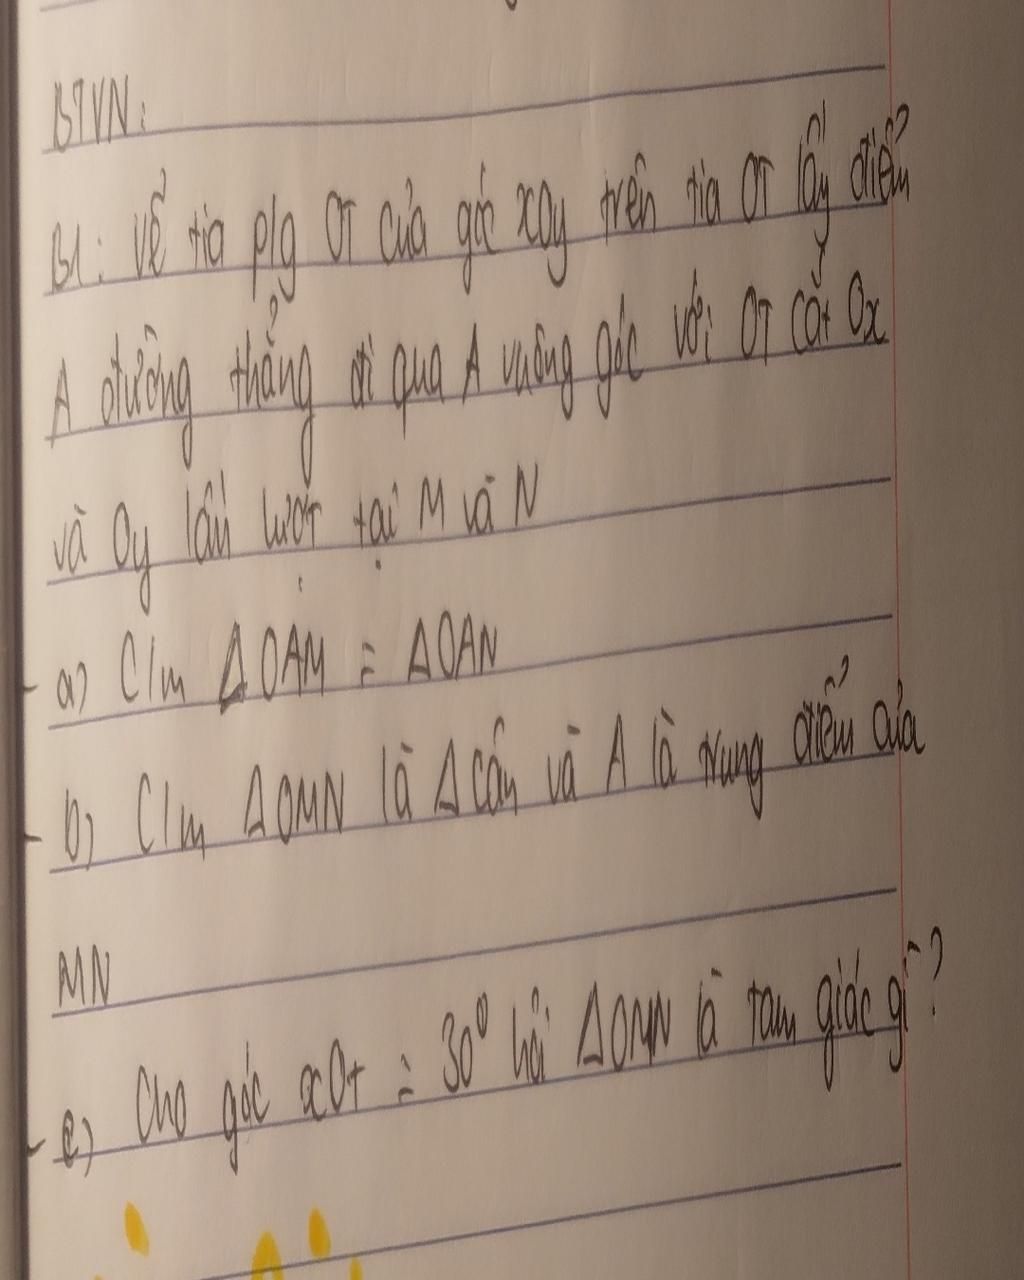 BTVN:
B1: Vẽ tia p/g OT của góc xOy trên tia OT lấy điểm
A đường thẳng đi qua A vuông góc với OT cắt Ox
và Oy lần lượt tại M và N
a) C/m ΔOAM = ΔOAN
b) C/m ΔOMN là Δ cân và A là trung điểm của
MN
c) Cho góc xOt = 30⁰ hỏi ΔOMN là tam giác gì?